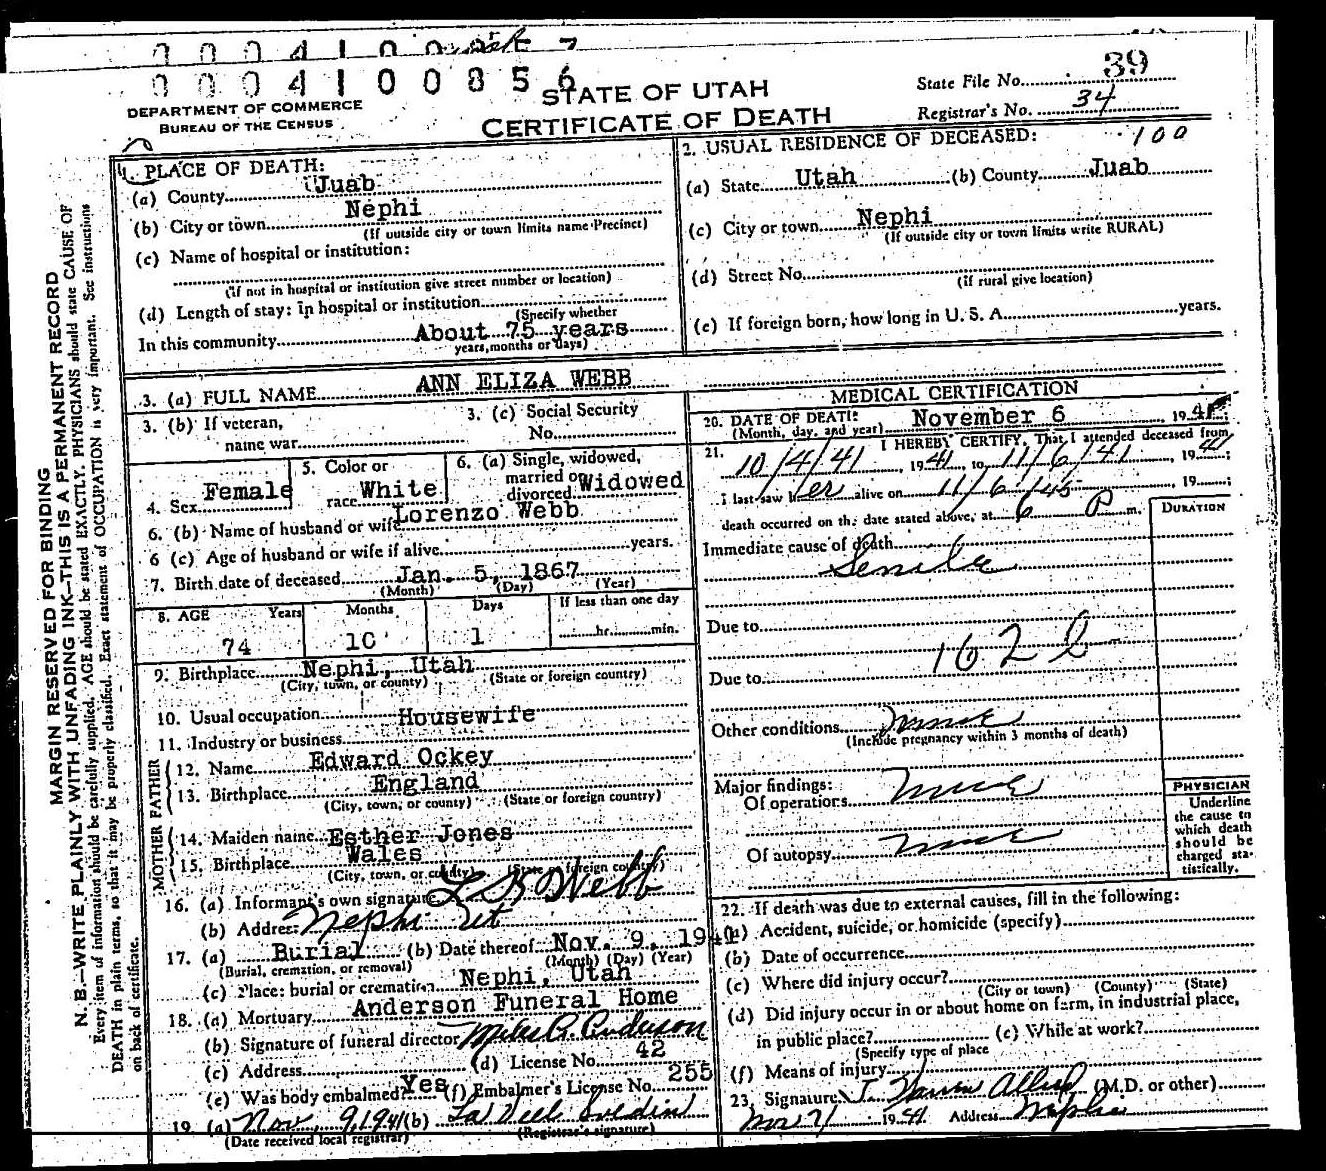 0 0 0 4 1 0 0
0 0 0 4 1 0 0 8 5 6
DEPARTMENT OF COMMERCE
BUREAU OF THE CENSUS
STATE OF UTAH
CERTIFICATE OF DEATH
State File No. 39
Registrar's No. 34
MARGIN RESERVED FOR BINDING
N. B.—WRITE PLAINLY WITH UNFADING INK—THIS IS A PERMANENT RECORD
Every item of information should be carefully supplied. AGE should be stated EXACTLY. PHYSICIANS should state CAUSE OF
DEATH in plain terms, so that it may be properly classified. Exact statement of OCCUPATION is very important. See instructions
on back of certificate.
1. PLACE OF DEATH:
(a) County Juab
(b) City or town Nephi
(If outside city or town limits name Precinct)
(c) Name of hospital or institution:
(if not in hospital or institution give street number or location)
(d) Length of stay: In hospital or institution
(Specify whether
In this community About 75 years
years, months or days)
2. USUAL RESIDENCE OF DECEASED: 100
(a) State Utah (b) County Juab
(c) City or town Nephi
(If outside city or town limits write RURAL)
(d) Street No.
(if rural give location)
(e) If foreign born, how long in U. S. A. years.
3. (a) FULL NAME ANN ELIZA WEBB
3. (b) If veteran,
name war
3. (c) Social Security
No.
4. Sex Female
5. Color or
race White
6. (a) Single, widowed,
married or
divorced Widowed
6. (b) Name of husband or wife Lorenzo Webb
6 (c) Age of husband or wife if alive years.
7. Birth date of deceased Jan. 5, 1867
(Month) (Day) (Year)
8. AGE Years Months Days If less than one day
74 10 1 hr. min.
9. Birthplace Nephi, Utah
(City, town, or county) (State or foreign country)
10. Usual occupation Housewife
11. Industry or business
FATHER
12. Name Edward Ockey
13. Birthplace England
(City, town, or county) (State or foreign country)
MOTHER
14. Maiden name Esther Jones
15. Birthplace Wales
(City, town, or county) (State or foreign country)
16. (a) Informant's own signature L Webb
(b) Address Nephi Ut
17. (a) Burial (b) Date thereof Nov. 9, 1941
(Burial, cremation, or removal) (Month) (Day) (Year)
(c) Place: burial or cremation Nephi, Utah
18. (a) Mortuary Anderson Funeral Home
(b) Signature of funeral director Miles Anderson
(c) Address (d) License No. 42
(e) Was body embalmed? Yes (f) Embalmer's License No. 255
19. (a) Nov. 9, 1941 (b)
(Date received local registrar) (Registrar's signature)
MEDICAL CERTIFICATION
20. DATE OF DEATH: November 6 1941
(Month, day, and year)
21. I HEREBY CERTIFY, That I attended deceased from
10/4/41, 1941, to 11/6/41, 1941;
I last saw her alive on 11/6/45, 19 ;
death occurred on the date stated above, at 6 P m.
DURATION
Immediate cause of death
Senile
Due to
162 b
Due to
Other conditions none
(Include pregnancy within 3 months of death)
Major findings:
Of operations none
Of autopsy none
PHYSICIAN
Underline
the cause to
which death
should be
charged sta-
tistically.
22. If death was due to external causes, fill in the following:
(a) Accident, suicide, or homicide (specify)
(b) Date of occurrence
(c) Where did injury occur?
(City or town) (County) (State)
(d) Did injury occur in or about home on farm, in industrial place,
in public place? (e) While at work?
(Specify type of place
(f) Means of injury
23. Signature J. Allred (M.D. or other)
1941 Address Nephi